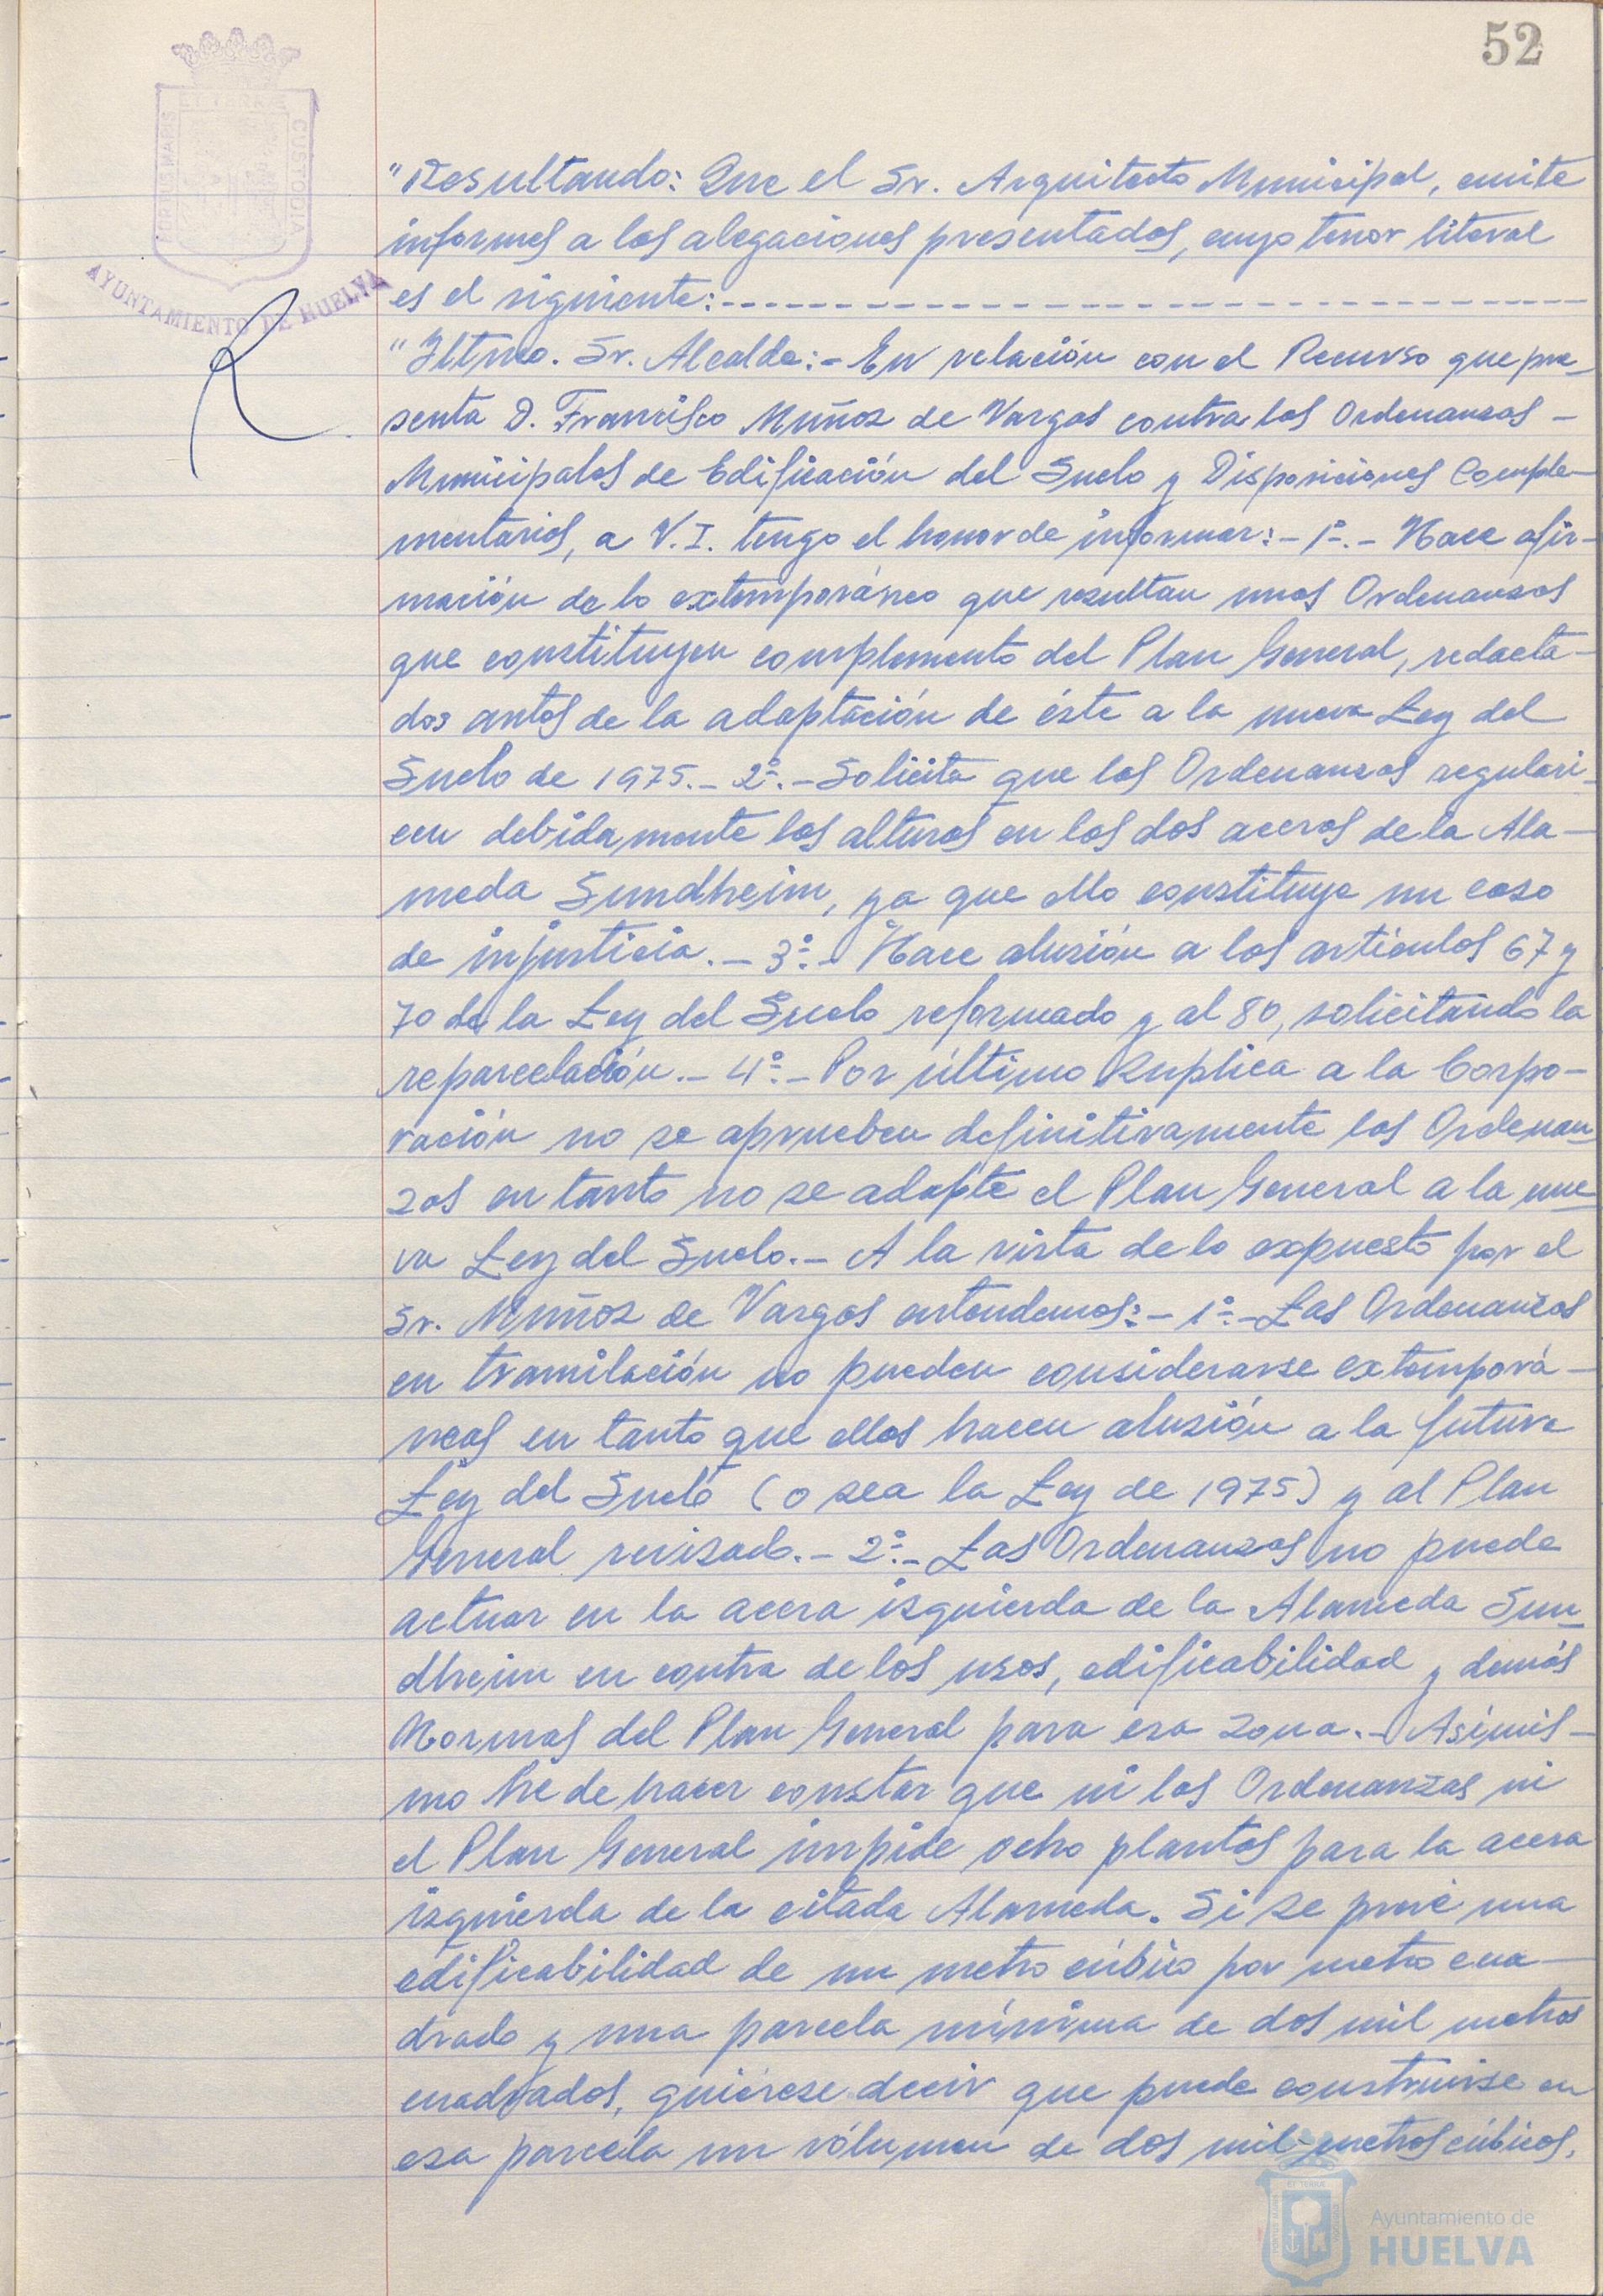 52
PORTUS MARIS
ET TERRAE
CUSTODIA
AYUNTAMIENTO DE HUELVA
"Resultando: Que el Sr. Arquitecto Municipal, emite
informes a las alegaciones presentadas, cuyo tenor literal
es el siguiente:-----------------------------
"Iltmo. Sr. Alcalde:- En relación con el Recurso que pre-
senta D. Francisco Muñoz de Vargas contra las Ordenanzas -
Municipales de Edificación del Suelo y Disposiciones Comple-
mentarias, a V.I. tengo el honor de informar:- 1º.- Hace afir-
mación de lo extemporáneo que resultan unas Ordenanzas
que constituyen complemento del Plan General, redacta-
das antes de la adaptación de éste a la nueva Ley del
Suelo de 1975.- 2º.- Solicita que las Ordenanzas regulari-
cen debidamente las alturas en las dos aceras de la Ala-
meda Sundheim, ya que ello constituye un caso
de injusticia.- 3º.- Hace alusión a los artículos 67 y
70 de la Ley del Suelo reformado y al 80, solicitando la
reparcelación.- 4º.- Por último suplica a la Corpo-
ración no se aprueben definitivamente las Ordenan-
zas en tanto no se adapte el Plan General a la nue-
va Ley del Suelo.- A la vista de lo expuesto por el
Sr. Muñoz de Vargas entendemos:- 1º.- Las Ordenanzas
en tramilación no pueden considerarse extemporá-
neas en tanto que ellas hacen alusión a la futura
Ley del Suelo (o sea la Ley de 1975) y al Plan
General revisado.- 2º.- Las Ordenanzas no puede
actuar en la acera izquierda de la Alameda Sun-
dheim en contra de los usos, edificabilidad y demás
Normas del Plan General para esa zona.- Asimis-
mo he de hacer constar que ni las Ordenanzas ni
el Plan General impide ocho plantas para la acera
izquierda de la citada Alameda. Si se prevé una
edificabilidad de un metro cúbico por metro cua-
drado y una parcela mínima de dos mil metros
cuadrados, quiérese decir que puede construirse en
esa parcela un vólumen de dos mil metros cúbicos.
Ayuntamiento de
HUELVA